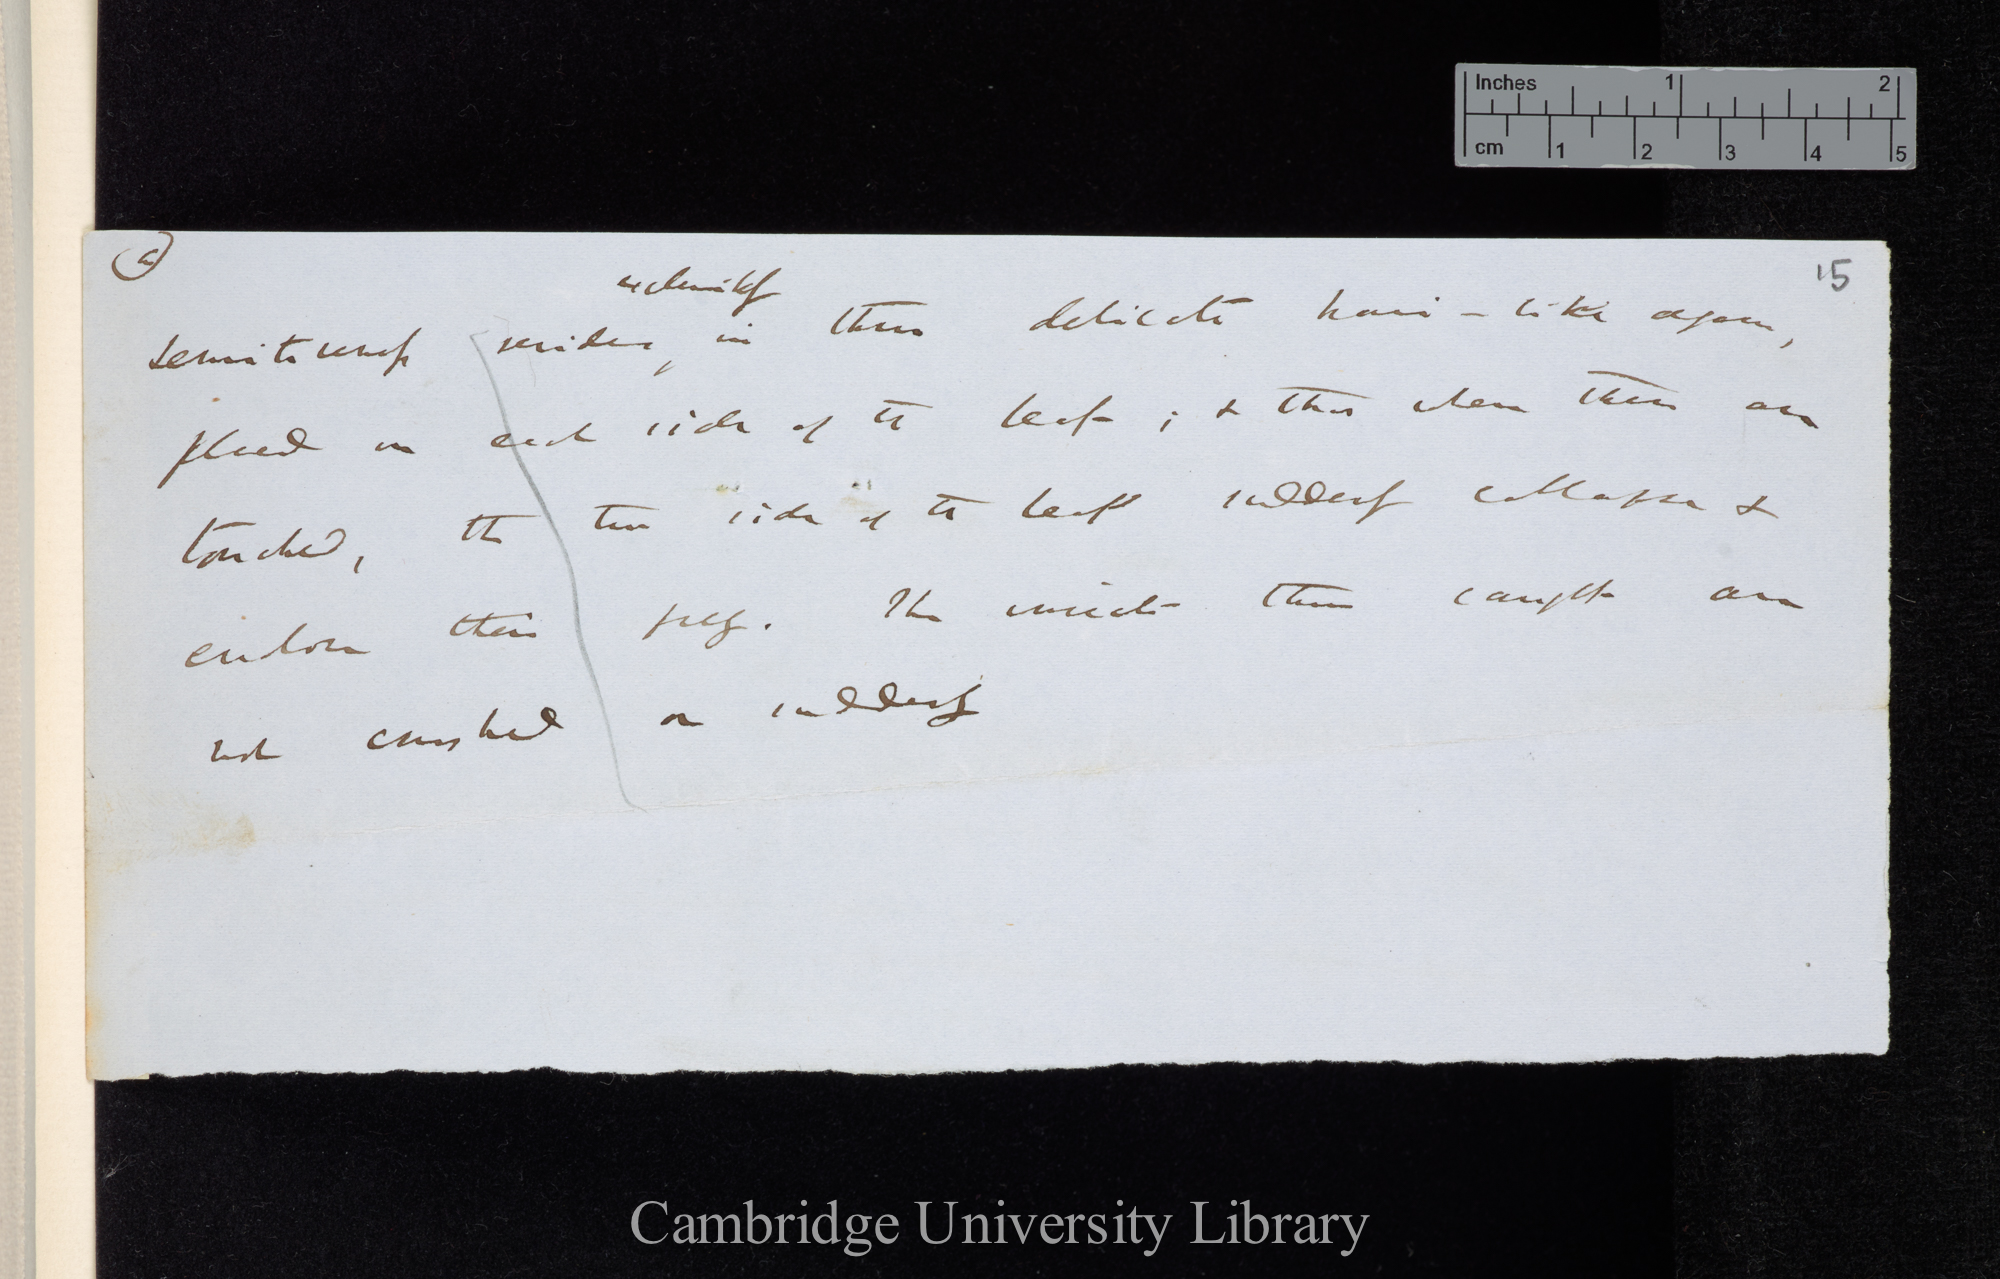 (a)
15
exclusively
sensitiveness resides, in three delicate hair-like organs,
placed on each side of the leaf; & that when these are
touched, the two sides of the leaf suddenly collapse &
enclose their prey. The insects thus caught are
not crushed or suddenly
Inches 1 2
cm 1 2 3 4 5
Cambridge University Library